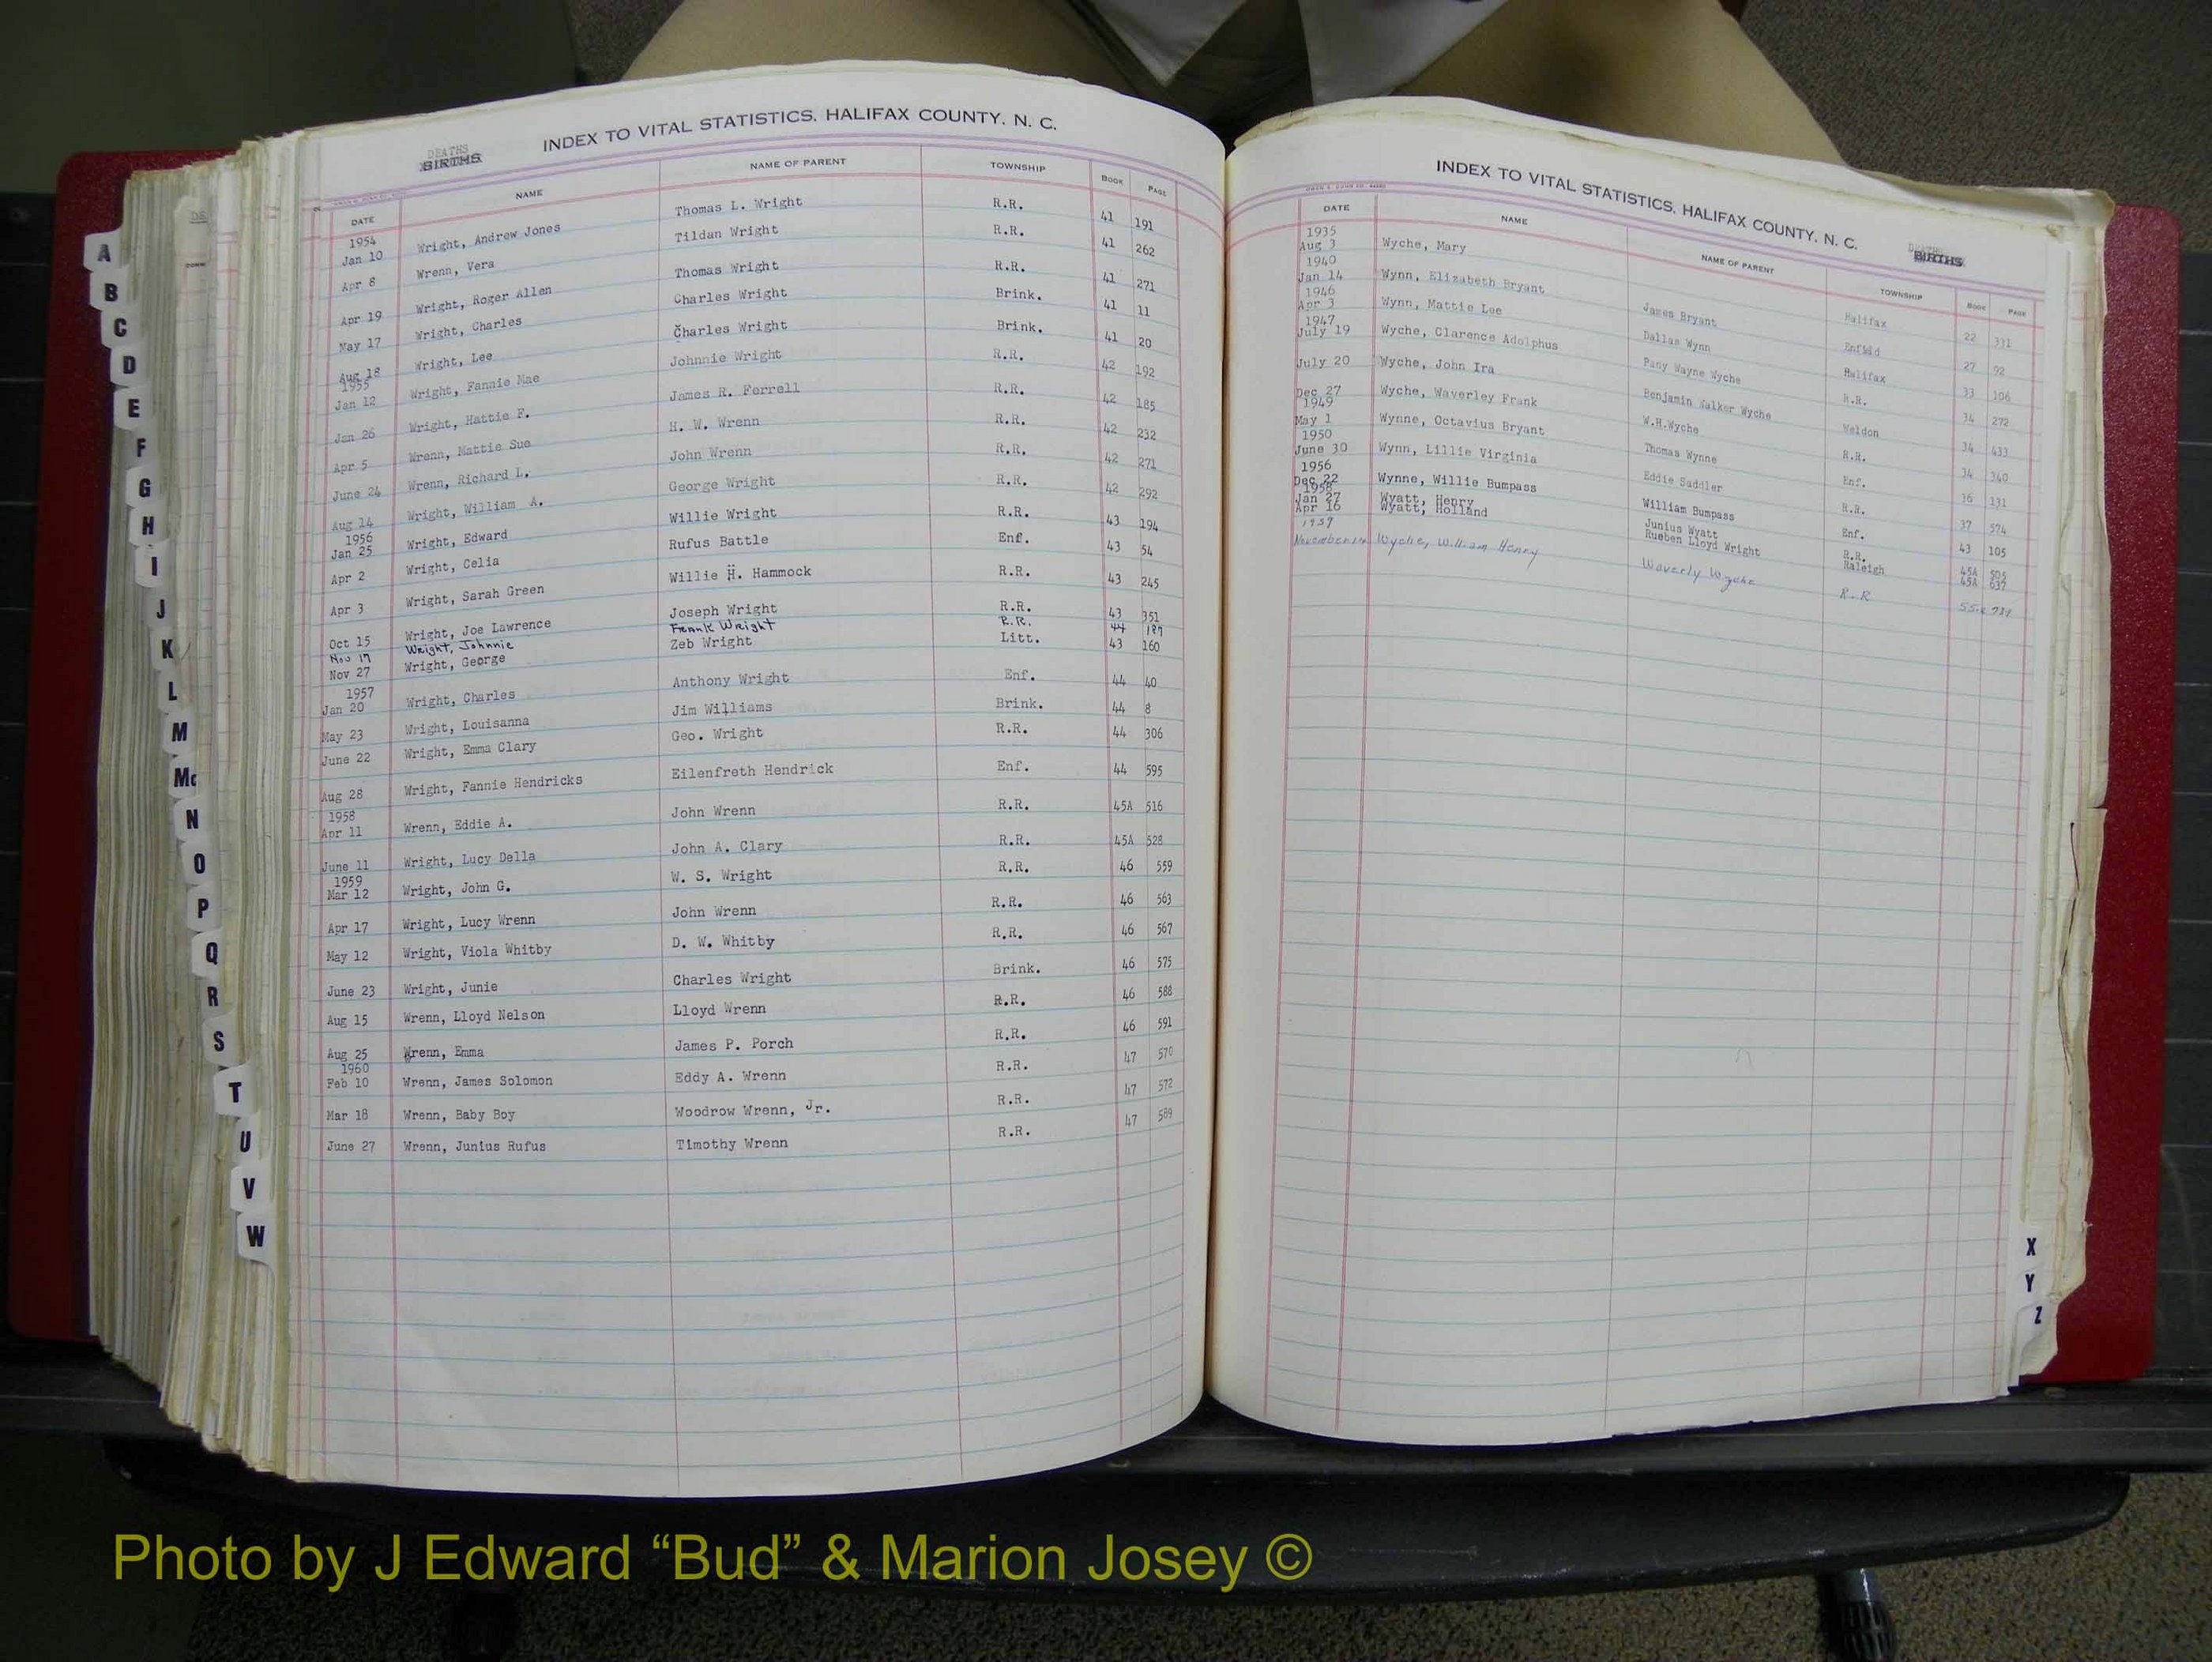 INDEX TO VITAL STATISTICS, HALIFAX COUNTY, N. C.
DEATHS
BIRTHS
DATE NAME NAME OF PARENT TOWNSHIP BOOK PAGE
1954
Jan 10 Wright, Andrew Jones Thomas L. Wright R.R. 41 191
Apr 8 Wrenn, Vera Tildan Wright R.R. 41 262
Apr 19 Wright, Roger Allen Thomas Wright R.R. 41 271
May 17 Wright, Charles Charles Wright Brink. 41 11
Aug 18 Wright, Lee Charles Wright Brink. 41 20
1955
Jan 12 Wright, Fannie Mae Johnnie Wright R.R. 42 192
Jan 26 Wright, Hattie F. James R. Ferrell R.R. 42 185
Apr 5 Wrenn, Mattie Sue H. W. Wrenn R.R. 42 232
June 24 Wrenn, Richard L. John Wrenn R.R. 42 271
Aug 14 Wright, William A. George Wright R.R. 42 292
1956
Jan 25 Wright, Edward Willie Wright R.R. 43 194
Apr 2 Wright, Celia Rufus Battle Enf. 43 54
Apr 3 Wright, Sarah Green Willie H. Hammock R.R. 43 245
Oct 15 Wright, Joe Lawrence Joseph Wright R.R. 43 351
Nov 17 Wright, Johnnie Frank Wright R.R. 44 187
Nov 27 Wright, George Zeb Wright Litt. 43 160
1957
Jan 20 Wright, Charles Anthony Wright Enf. 44 40
May 23 Wright, Louisanna Jim Williams Brink. 44 8
June 22 Wright, Emma Clary Geo. Wright R.R. 44 306
Aug 28 Wright, Fannie Hendricks Eilenfreth Hendrick Enf. 44 595
1958
Apr 11 Wrenn, Eddie A. John Wrenn R.R. 45A 516
June 11 Wright, Lucy Della John A. Clary R.R. 45A 528
1959
Mar 12 Wright, John G. W. S. Wright R.R. 46 559
Apr 17 Wright, Lucy Wrenn John Wrenn R.R. 46 563
May 12 Wright, Viola Whitby D. W. Whitby R.R. 46 567
June 23 Wright, Junie Charles Wright Brink. 46 575
Aug 15 Wrenn, Lloyd Nelson Lloyd Wrenn R.R. 46 588
Aug 25 Wrenn, Emma James P. Porch R.R. 46 591
1960
Feb 10 Wrenn, James Solomon Eddy A. Wrenn R.R. 47 570
Mar 18 Wrenn, Baby Boy Woodrow Wrenn, Jr. R.R. 47 572
June 27 Wrenn, Junius Rufus Timothy Wrenn R.R. 47 589
INDEX TO VITAL STATISTICS, HALIFAX COUNTY, N. C.
DEATHS
BIRTHS
DATE NAME NAME OF PARENT TOWNSHIP BOOK PAGE
1935
Aug 3 Wyche, Mary Halifax 22 331
1940
Jan 14 Wynn, Elizabeth Bryant James Bryant Enfield 27 92
1946
Apr 3 Wynn, Mattie Lee Dallas Wynn Halifax 33 106
1947
July 19 Wyche, Clarence Adolphus Pany Wayne Wyche R.R. 34 272
July 20 Wyche, John Ira Benjamin Walker Wyche Weldon 34 433
Dec 27 Wyche, Waverley Frank W.H.Wyche R.R. 34 340
1949
May 1 Wynne, Octavius Bryant Thomas Wynne Enf. 36 131
1950
June 30 Wynn, Lillie Virginia Eddie Saddler R.R. 37 574
1956
Dec 22 Wynne, Willie Bumpass William Bumpass Enf. 43 105
1958
Jan 27 Wyatt, Henry Junius Wyatt R.R. 45A 505
Apr 16 Wyatt, Holland Rueben Lloyd Wright Raleigh 45A 637
Wyche, William Henry Waverly Wyche R.R
A
B
C
D
E
F
G
H
I
J
K
L
M
Mc
N
O
P
Q
R
S
T
U
V
W
X
Y
Z
Photo by J Edward “Bud” & Marion Josey ©